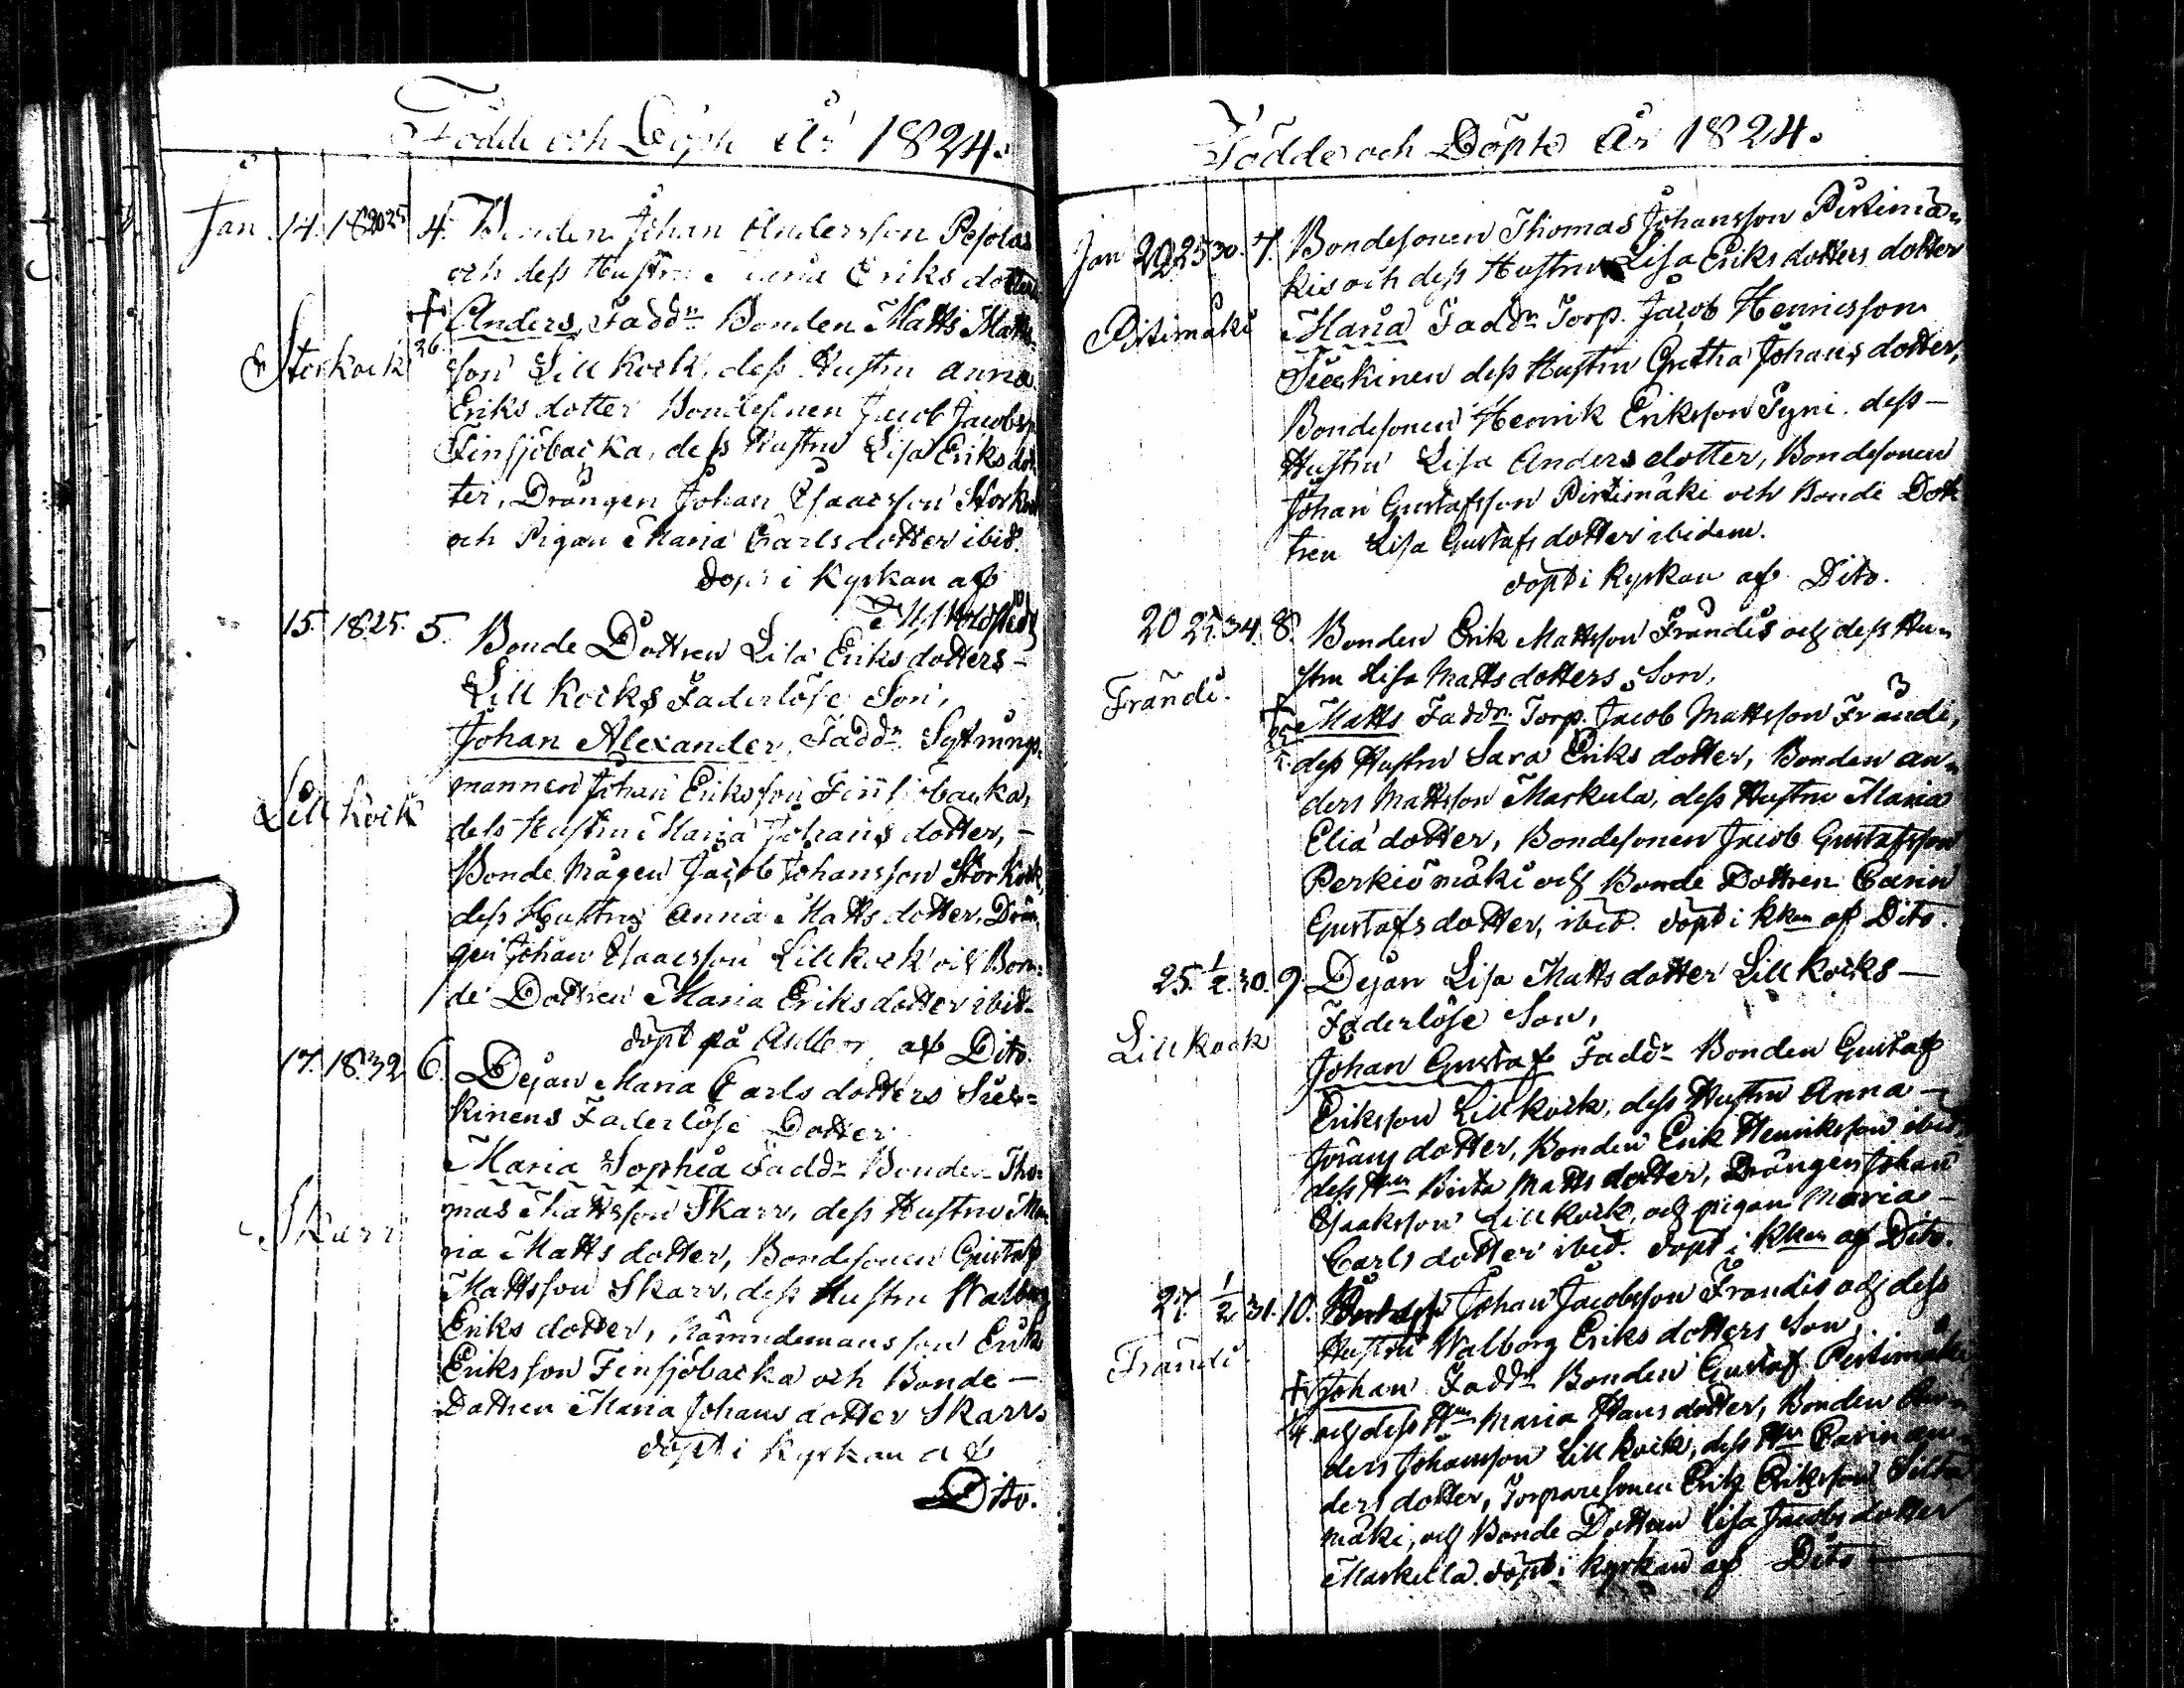 Födde och Döpte År 1824.
Jan. 14. 18 20 25 4. Bonden Johan Andersson Pesolas
och dess Hustru Eriks dotters
+ Anders, Faddr Bonden Matts Matts-
Storkock 26. son Lill Kock, dess Hustru Anna
Eriks dotter Bondesonen Jacob Jacobsn
Finsjöbacka, dess Hustru Lisa Eriks dot-
ter, Drängen Johan Isaacsson Storkock
och Pigan Maria Carlsdotter ibid.
döpt i Kyrkan af

15. 18. 25. 5. Bonde Dottren Lisa Eriks dotters-
Lill Kocks Faderlöse Son,
Johan Alexander, Faddr Sytnings-
mannen Johan Eriksson Finsjöbacka,
Lill Kock dess Hustru Maria Johans dotter,-
Bonde Mågen Jacob Johansson Storkock,
dess Hustru Anna Matts dotter, Drän-
gen Johan Isaacsson Lillkock och Bon-
de Dottren Maria Eriks dotter ibid-
döpt på af Dito.
17. 18. 32 6. Dejan Maria Carls dotters Siec-
kinens Faderlöse Dotter
Maria Sophia Faddr Bonden Tho-
mas Mattsson Skarr, dess Hustru Ma-
Skarr ria Matts dotter, Bondesonen Gustaf
Mattsson Skarr, dess Hustru Walborg
Eriks dotter, Nämndemans son Erik
Eriksson Finsjöbacka och Bonde-
Dottren Maria Johans dotter Skarr.
döpt i Kyrkan af
Dito.
Födde och Döpte År 1824.
Jan 20 25 30. 7. Bondesonen Thomas Johansson Pirtimä-
kis och dess Hustru Lisa Eriks dotters dotter
Pirtimäki Maria Faddr Torp. Jacob Henricsson
Sieckinen dess Hustru Gretha Johans dotter,
Bondesonen Henrik Eriksson Syni. dess-
Hustru Lisa Anders dotter, Bondesonen
Johan Gustafsson Pirtimäki och Bonde Dott
tren Lisa Gustafs dotter ibidem.
döpt i Kyrkan af Dito.
20 25. 34. 8. Bonden Erik Mattsson Frändis och dess Hu-
stru Lisa Matts dotters Son,
Frändi. + Matts Faddr. Torp. Jacob Mattsson Frändi,
dess Hustru Sara Eriks dotter, Bonden An-
ders Mattsson Markula, dess Hustru Maria
Elia dotter, Bondesonen Jacob Gustafsson
Perkiömäki och Bonde Dottren Carin
Gustafs dotter, ibid. döpt i kkan af Dito.
25. 1/2. 30. 9. Dejan Lisa Matts dotter Lill Kocks-
Faderlöse Son,
Lill Kock Johan Gustaf Faddr Bonden Gustaf
Eriksson Lillkock, dess Hustru Anna-
Jörans dotter, Bonden Erik Henriksson ibid,
dess Hu Brita Matts dotter, Drängen Johan
Isaaksson Lillkock, och pigan Maria-
Carls dotter ibid. döpt i kkan af Dito.
27. 1/2 31. 10. Johan Jacobsson Frändis och dess
Hustru Walborg Eriks dotters Son,
Frändi. + Johan Faddr Bonden Gustaf Pirtimäki
1/4. och dess Hu Maria Hans dotter, Bonden An-
ders Johansson Lillkock, dess Hu Carin An-
ders dotter, Torparesonen Erik Eriksson Silta
mäki, och Bonde Dottren Lisa Jacobs dotter
Markula. döpt i kyrkan af Dito